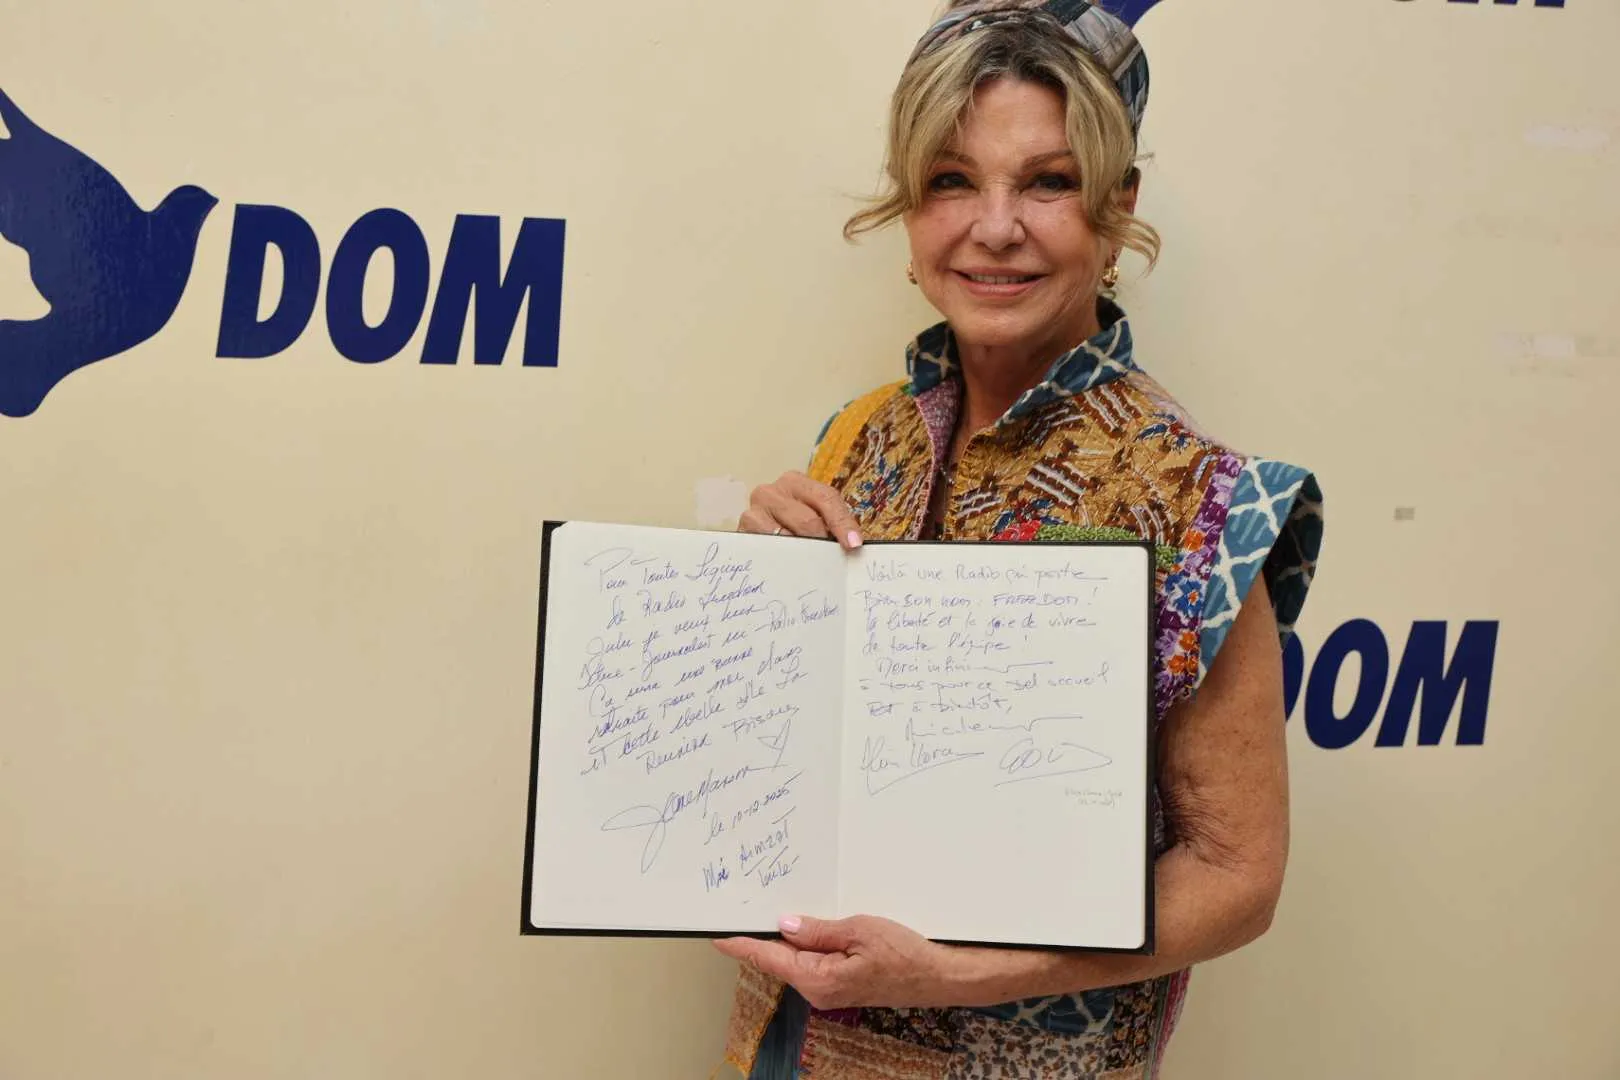 DOM
DOM
Pour Toutes L'équipe
de Radio Freedom
Julu je veux bien
être - Journalist ici - Radio Freedom
Ça sera une bonne
retraite pour moi dans
et cette belle île La
Réunion Bisous
le 10-12-2025
Voilà une Radio qui porte
Bien son nom : FREEDOM !
la liberté et la joie de vivre
de toute l'équipe !
Merci infiniment
à tous pour ce bel accueil
Et à bientôt,